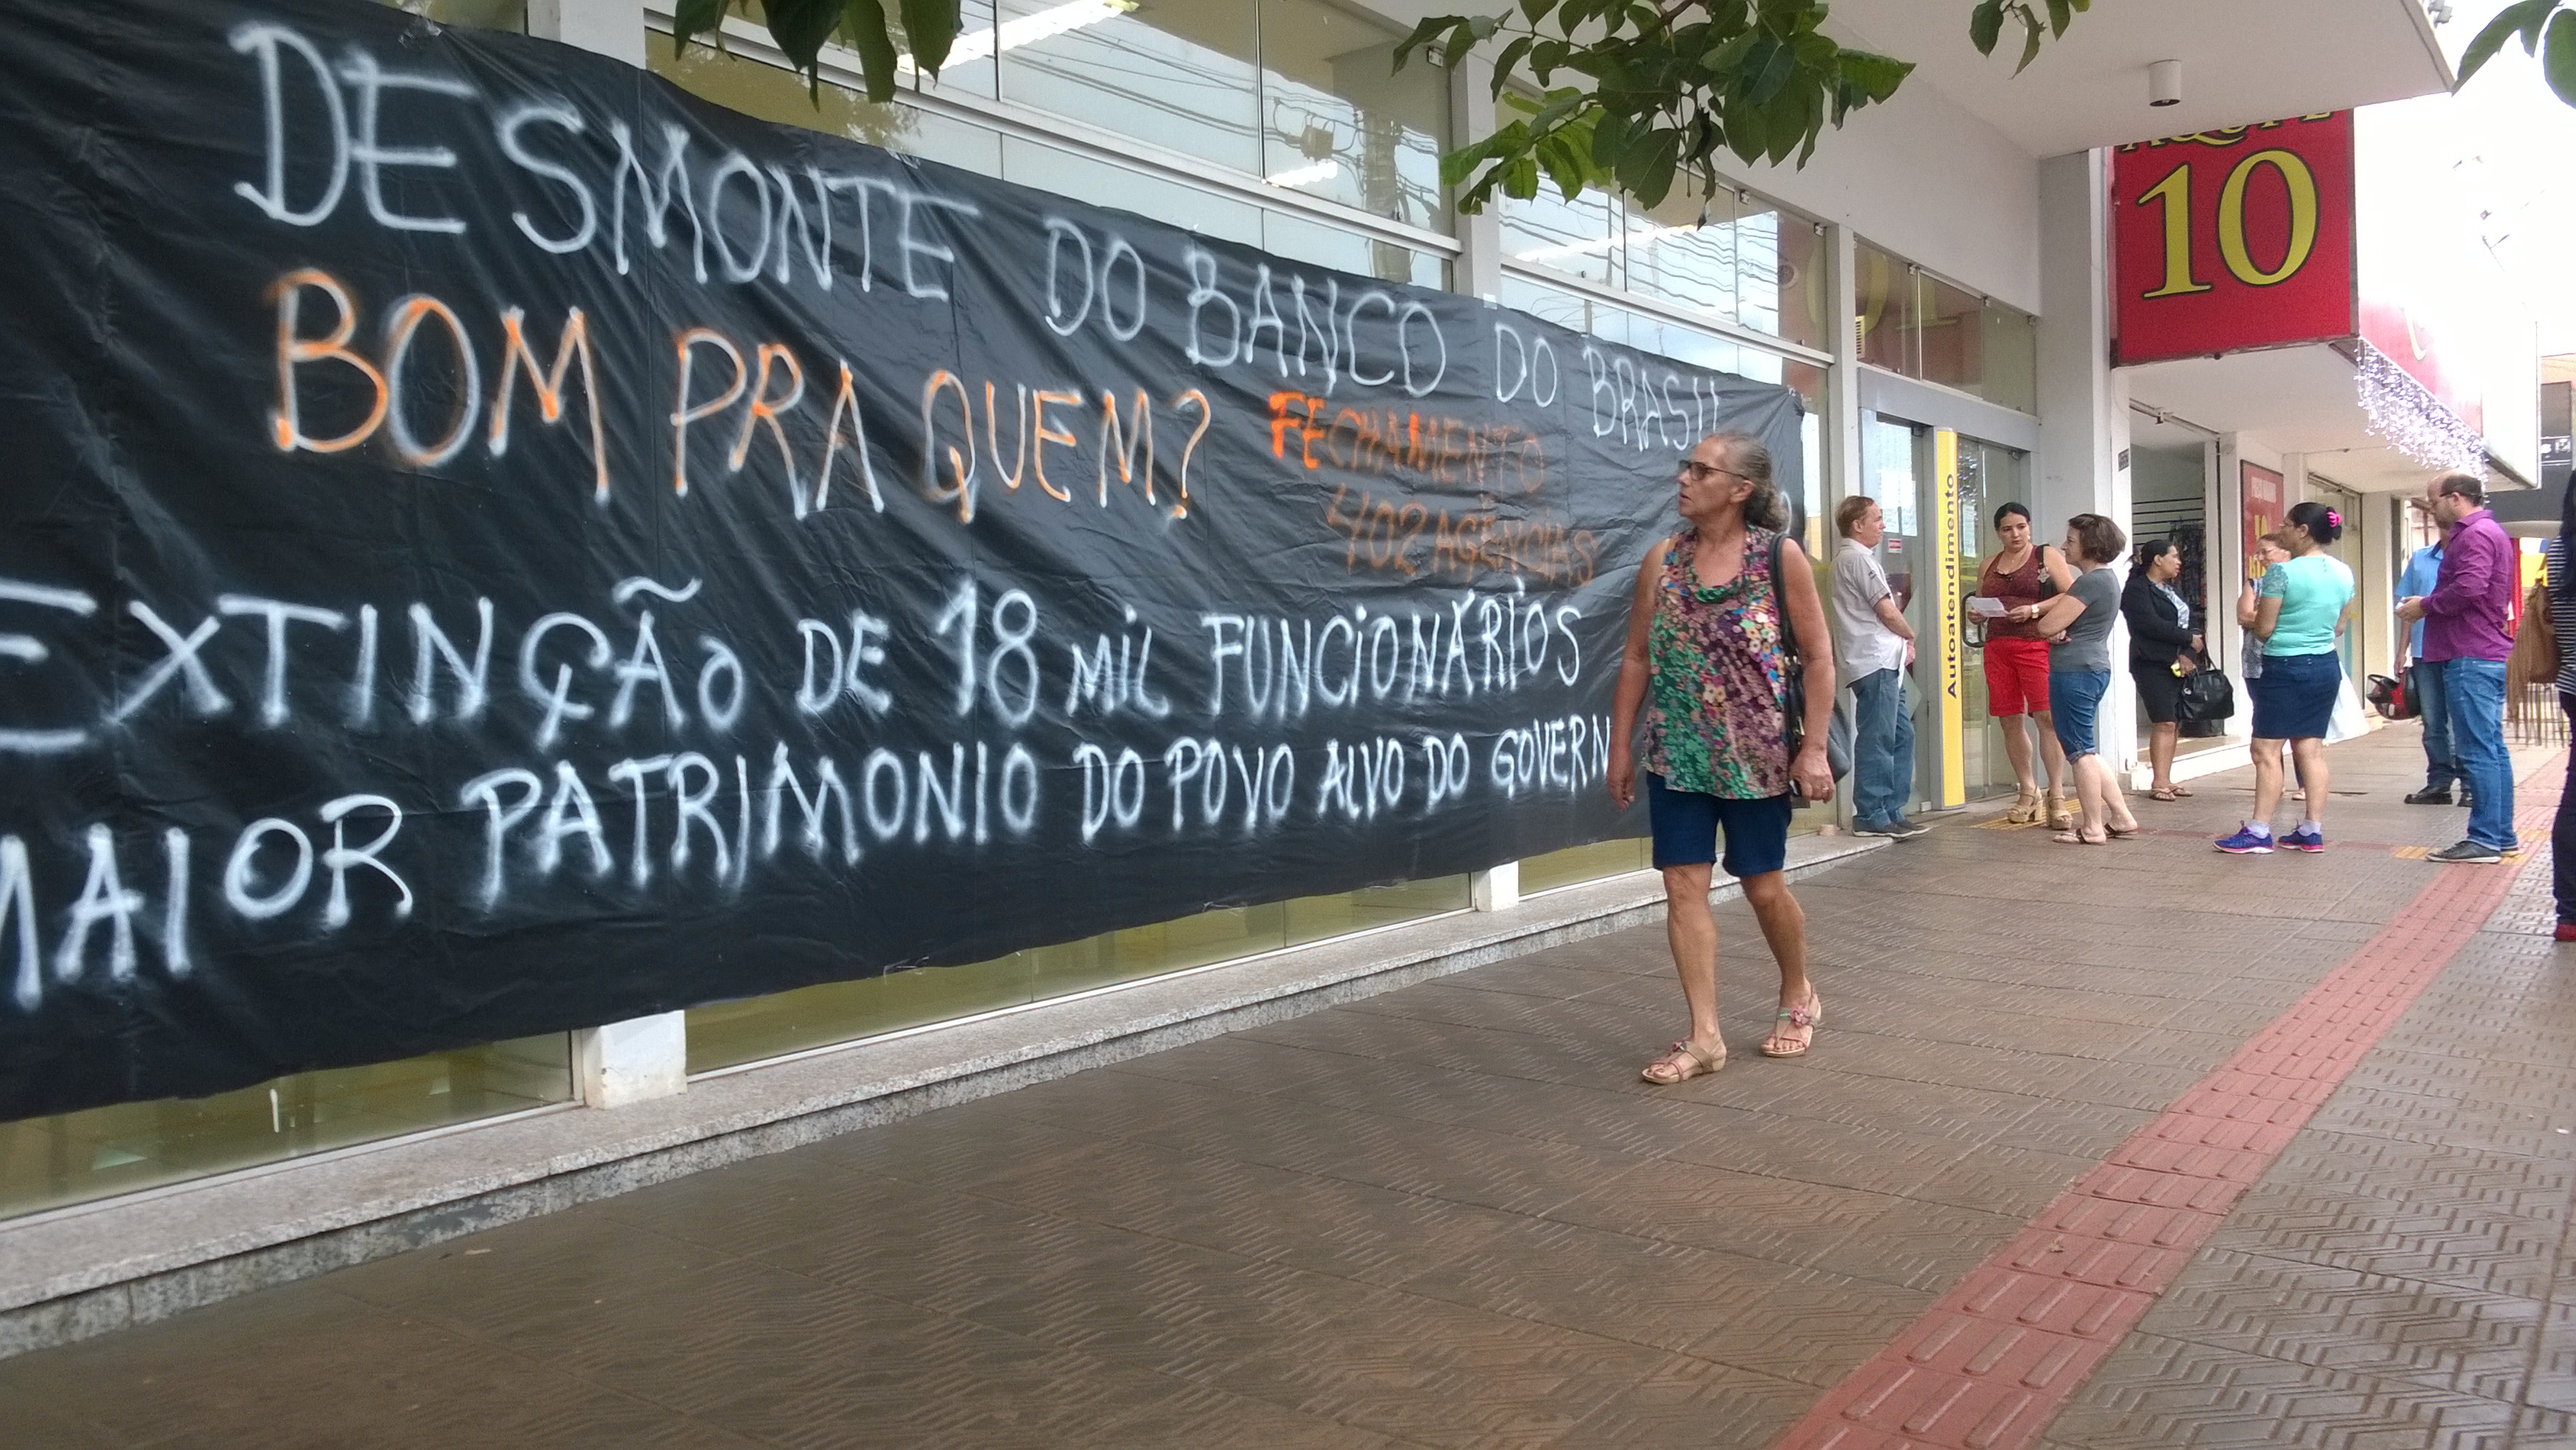 DESMONTE DO BANCO DO BRASIL
BOM PRA QUEM?
FECHAMENTO
402 AGÊNCIAS
EXTINÇÃO DE 18 MIL FUNCIONÁRIOS
MAIOR PATRIMONIO DO POVO ALVO DO GOVERN
AQUI É
10
Autoatendimento